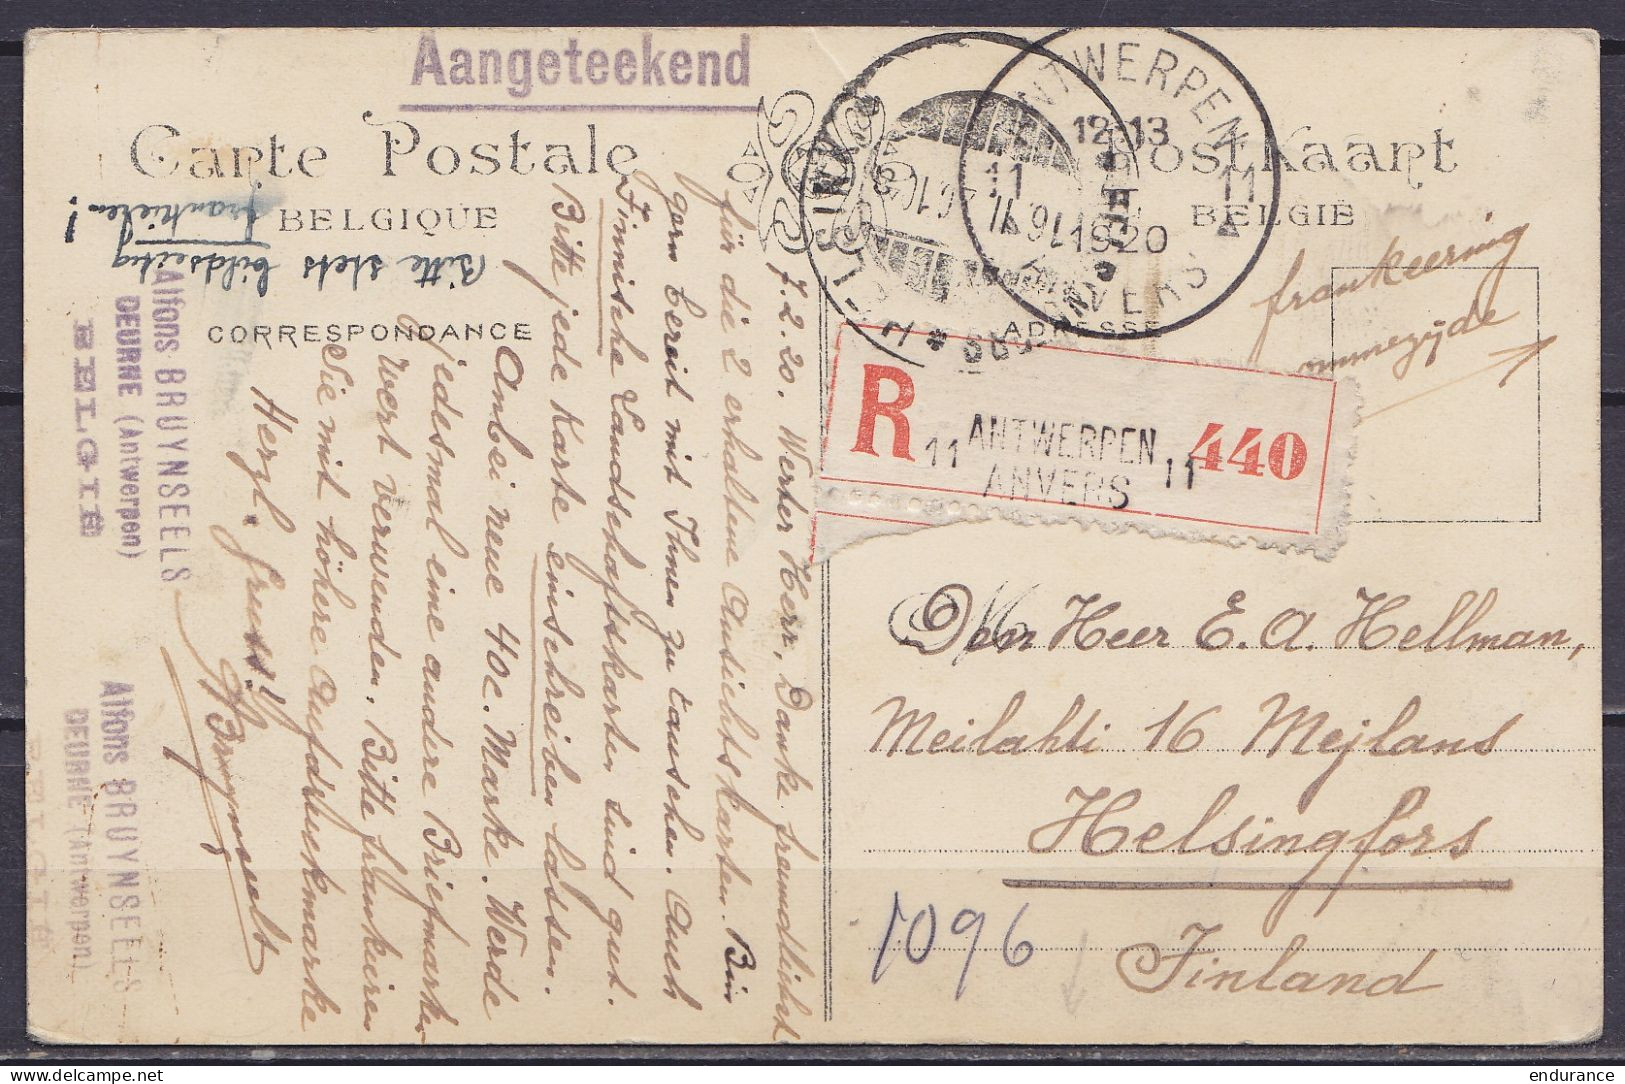 Aangeteekend
Carte Postale
Postkaart
BELGIQUE
BELGIË
CORRESPONDANCE
ADRESSE
ANTWERPEN
12-13
11
11
1920
ANVERS
frankeering
ommezijde
R
11 ANTWERPEN 11
ANVERS
440
Den Heer E. A. Hellman,
Meilahti 16 Mejlans
Helsingfors
Finland
1096
7.2.20. Werter Herr, Danke freundlichst
für die 2 erhaltene Ansichtskarten. Bin
gern bereit mit Ihnen zu tauschen. Auch
Finnische Landschaftskarten sind gut.
Bitte jede Karte einschreiben lassen.
Anbei neue 40c. Marke. Werde
jedesmal eine andere Briefmarke
Wert verwenden. Bitte frankieren
Sie mit höhere Aufdruckmarke
Herzl. Gruss!
Bitte stets bildseitig
frankieren!
Alfons BRUYNSEELS
DEURNE (Antwerpen)
BELGIË
Alfons BRUYNSEELS
DEURNE (Antwerpen)
BELGIË
endurance